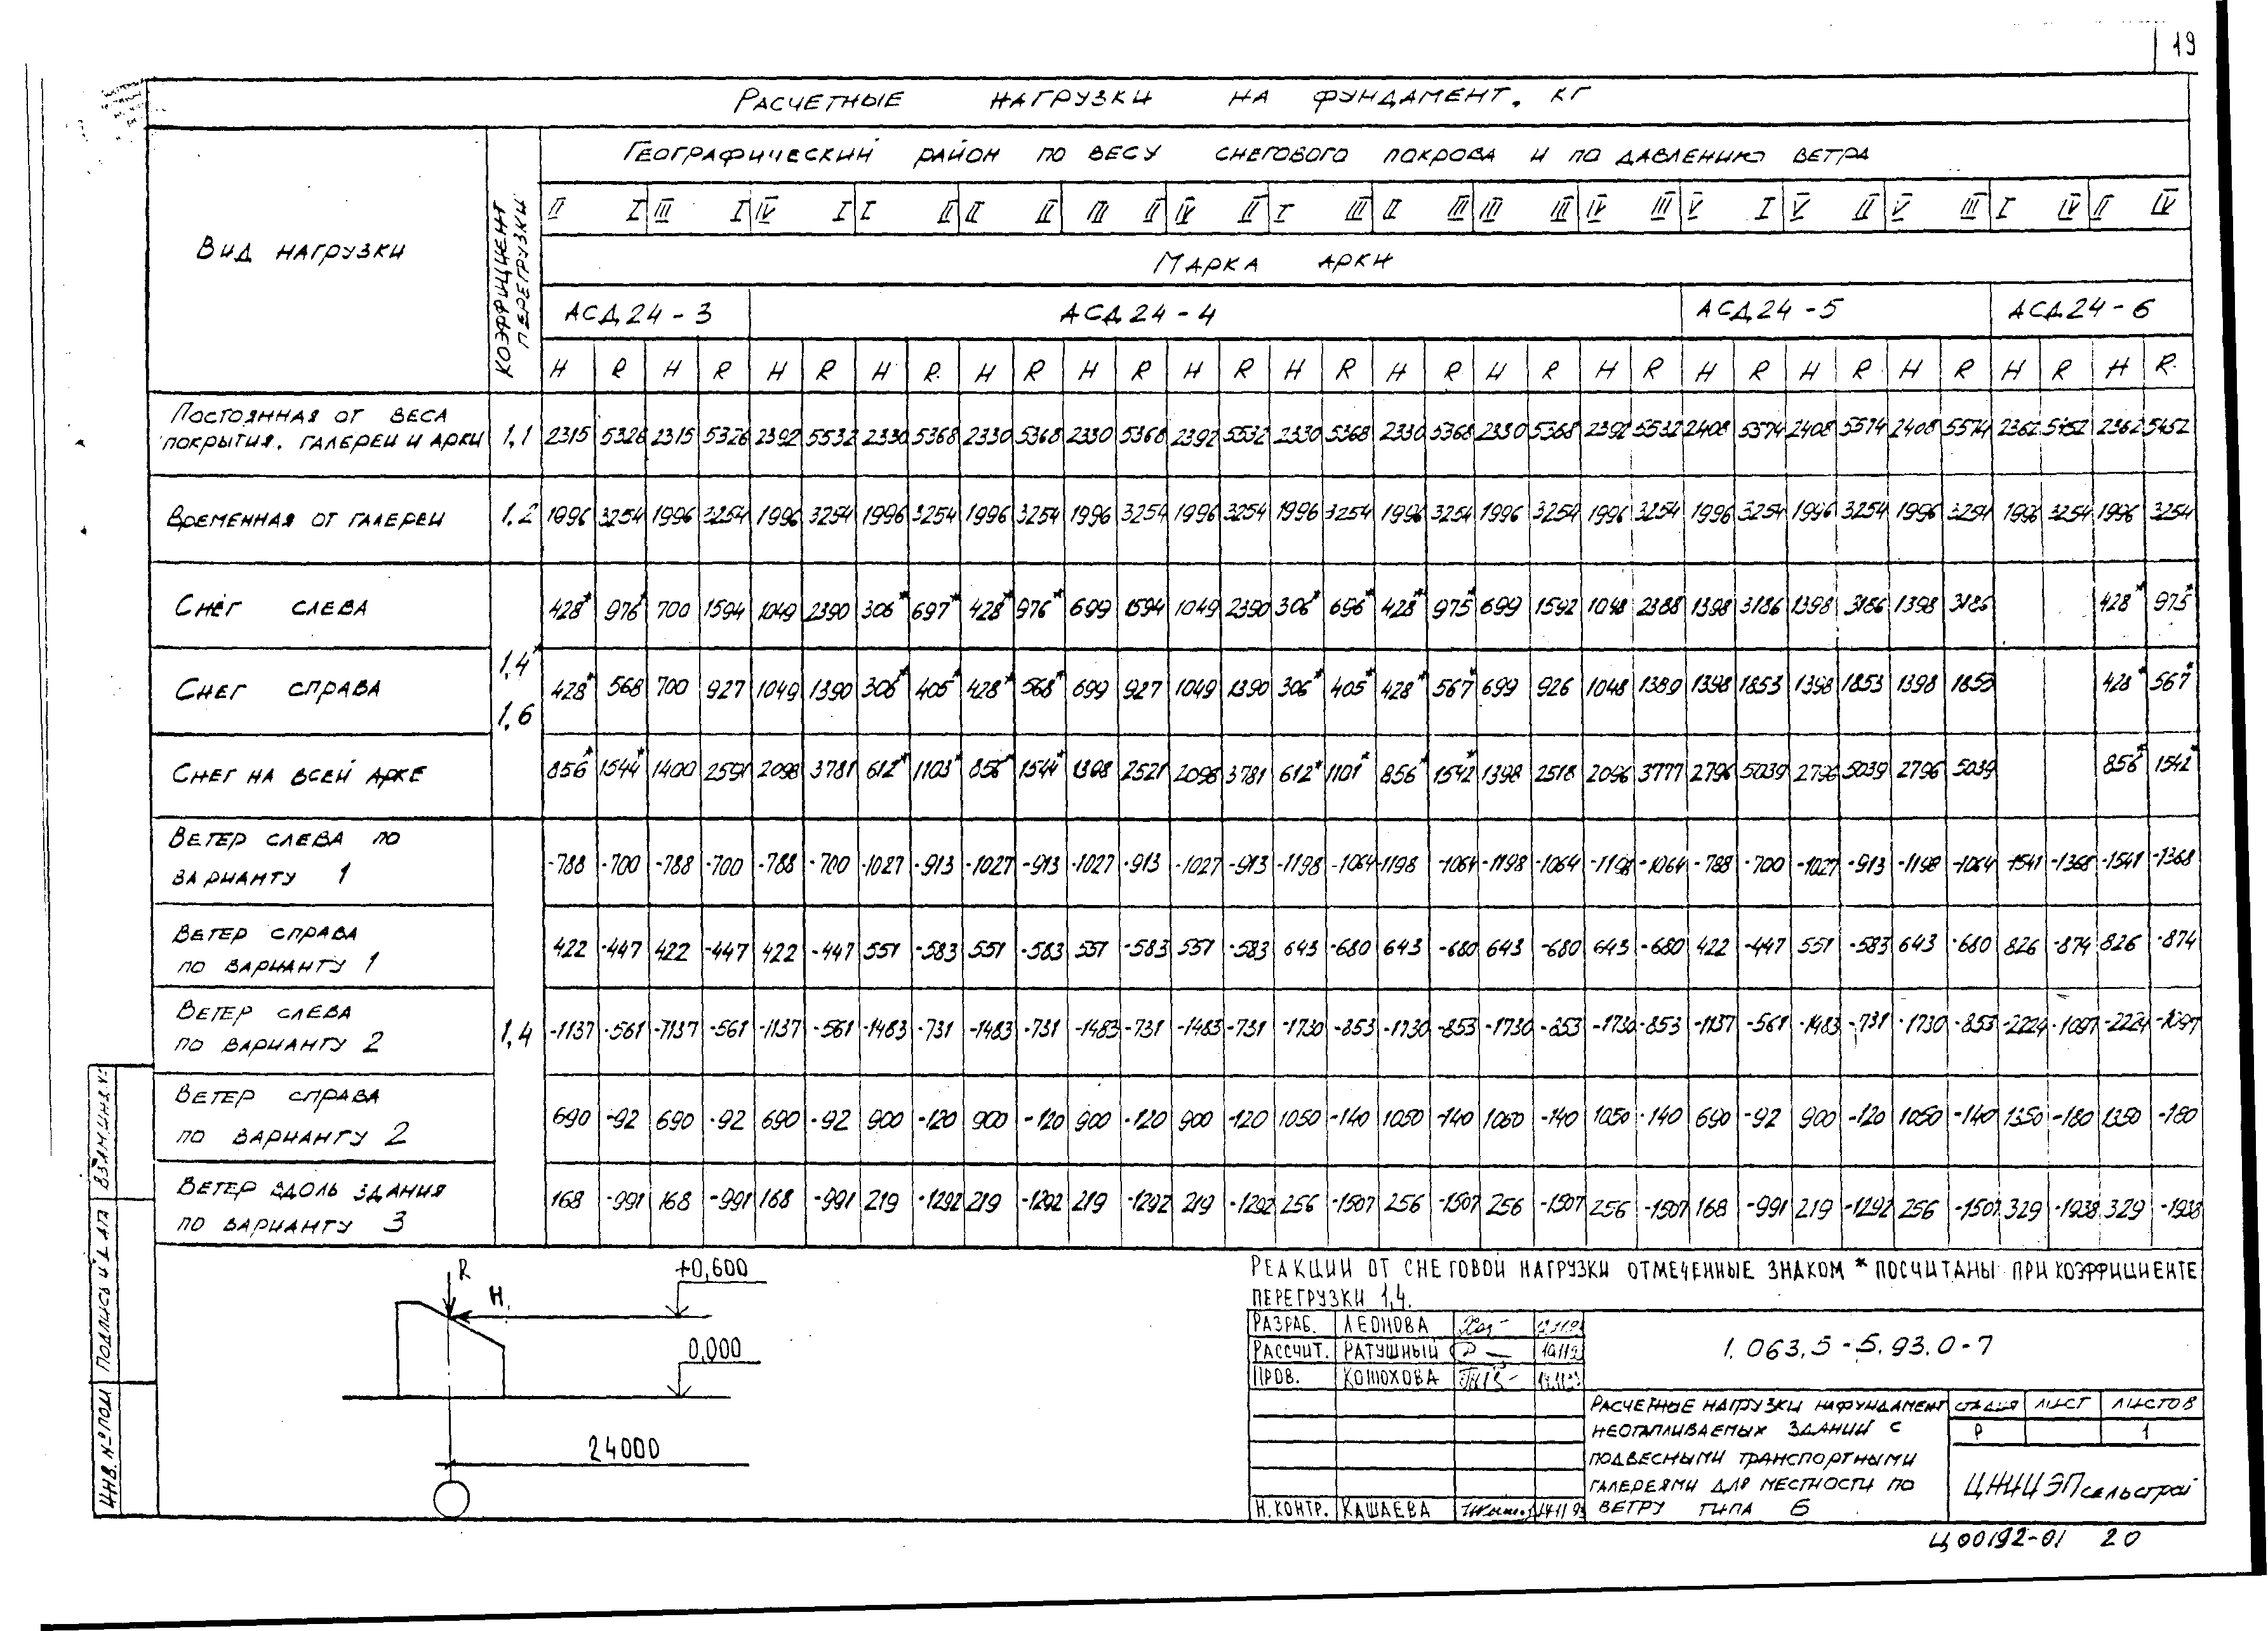 19
РАСЧЕТНЫЕ НАГРУЗКИ НА ФУНДАМЕНТ. КГ
ВИД НАГРУЗКИ
КОЭФФИЦИЕНТ ПЕРЕГРУЗКИ
ГЕОГРАФИЧЕСКИЙ РАЙОН ПО ВЕСУ СНЕГОВОГО ПОКРОВА И ПО ДАВЛЕНИЮ ВЕТРА
II I III I IV I I II II II III II IV II I III II III III III IV III V I V II V III I IV II IV
МАРКА АРКИ
АСД24-3 АСД24-4 АСД24-5 АСД24-6
H R H R H R H R H R H R H R H R H R H R H R H R H R H R H R H R
ПОСТОЯННАЯ ОТ ВЕСА
ПОКРЫТИЯ. ГАЛЕРЕИ И АРКИ 1,1 2315 5328 2315 5328 2392 5532 2330 5368 2330 5368 2330 5368 2392 5532 2330 5368 2330 5368 2330 5368 2392 5532 2408 5574 2408 5574 2408 5574 2362 5452 2362 5452
ВРЕМЕННАЯ ОТ ГАЛЕРЕИ 1,2 1996 3254 1996 3254 1996 3254 1996 3254 1996 3254 1996 3254 1996 3254 1996 3254 1996 3254 1996 3254 1996 3254 1996 3254 1996 3254 1996 3254 1996 3254 1996 3254
СНЕГ СЛЕВА 428* 976* 700 1594 1049 2390 306* 697* 428* 976* 699 1594 1049 2390 306* 696* 428* 975* 699 1592 1048 2388 1398 3186 1398 3186 1398 3186 428* 975*
1,4*
СНЕГ СПРАВА 428* 568 700 927 1049 1390 306* 405* 428* 568* 699 927 1049 1390 306* 405* 428* 567* 699 926 1048 1389 1398 1853 1398 1853 1398 1853 428* 567*
1,6
СНЕГ НА ВСЕЙ АРКЕ 856* 1544* 1400 2591 2098 3781 612* 1103* 856* 1544* 1398 2521 2098 3781 612* 1101* 856* 1542* 1398 2518 2096 3777 2796 5039 2796 5039 2796 5039 856* 1542*
ВЕТЕР СЛЕВА ПО
ВАРИАНТУ 1 -788 -700 -788 -700 -788 -700 -1027 -913 -1027 -913 -1027 -913 -1027 -913 -1198 -1064 -1198 -1064 -1198 -1064 -1198 -1064 -788 -700 -1027 -913 -1198 -1064 -1541 -1368 -1541 -1368
ВЕТЕР СПРАВА
ПО ВАРИАНТУ 1 422 -447 422 -447 422 -447 551 -583 551 -583 551 -583 551 -583 643 -680 643 -680 643 -680 643 -680 422 -447 551 -583 643 -680 826 -874 826 -874
ВЕТЕР СЛЕВА
ПО ВАРИАНТУ 2 1,4 -1137 -561 -1137 -561 -1137 -561 -1483 -731 -1483 -731 -1483 -731 -1483 -731 -1730 -853 -1730 -853 -1730 -853 -1730 -853 -1137 -561 -1483 -731 -1730 -853 -2224 -1097 -2224 -1097
ВЕТЕР СПРАВА
ПО ВАРИАНТУ 2 690 -92 690 -92 690 -92 900 -120 900 -120 900 -120 900 -120 1050 -140 1050 -140 1050 -140 1050 -140 690 -92 900 -120 1050 -140 1350 -180 1350 -180
ВЕТЕР ВДОЛЬ ЗДАНИЯ
ПО ВАРИАНТУ 3 168 -991 168 -991 168 -991 219 -1292 219 -1292 219 -1292 219 -1292 256 -1507 256 -1507 256 -1507 256 -1507 168 -991 219 -1292 256 -1507 329 -1938 329 -1938
R
H
+0,600
0,000
24000
РЕАКЦИИ ОТ СНЕГОВОЙ НАГРУЗКИ ОТМЕЧЕННЫЕ ЗНАКОМ * ПОСЧИТАНЫ ПРИ КОЭФФИЦИЕНТЕ
ПЕРЕГРУЗКИ 1,4.
РАЗРАБ. ЛЕОНОВА
РАССЧИТ. РАТУШНЫЙ
ПРОВ. КОНЮХОВА
Н.КОНТР. КАШАЕВА
1.063.5-5.93.0-7
РАСЧЕТНЫЕ НАГРУЗКИ НА ФУНДАМЕНТ
НЕОТАПЛИВАЕМЫХ ЗДАНИЙ С
ПОДВЕСНЫМИ ТРАНСПОРТНЫМИ
ГАЛЕРЕЯМИ ДЛЯ МЕСТНОСТИ ПО
ВЕТРУ ТИПА Б
СТАДИЯ ЛИСТ ЛИСТОВ
Р 1
ЦНИИЭПсельстрой
Ц00192-01 20
ИНВ.№ПОДЛ ПОДПИСЬ И ДАТА ВЗАМ.ИНВ.№